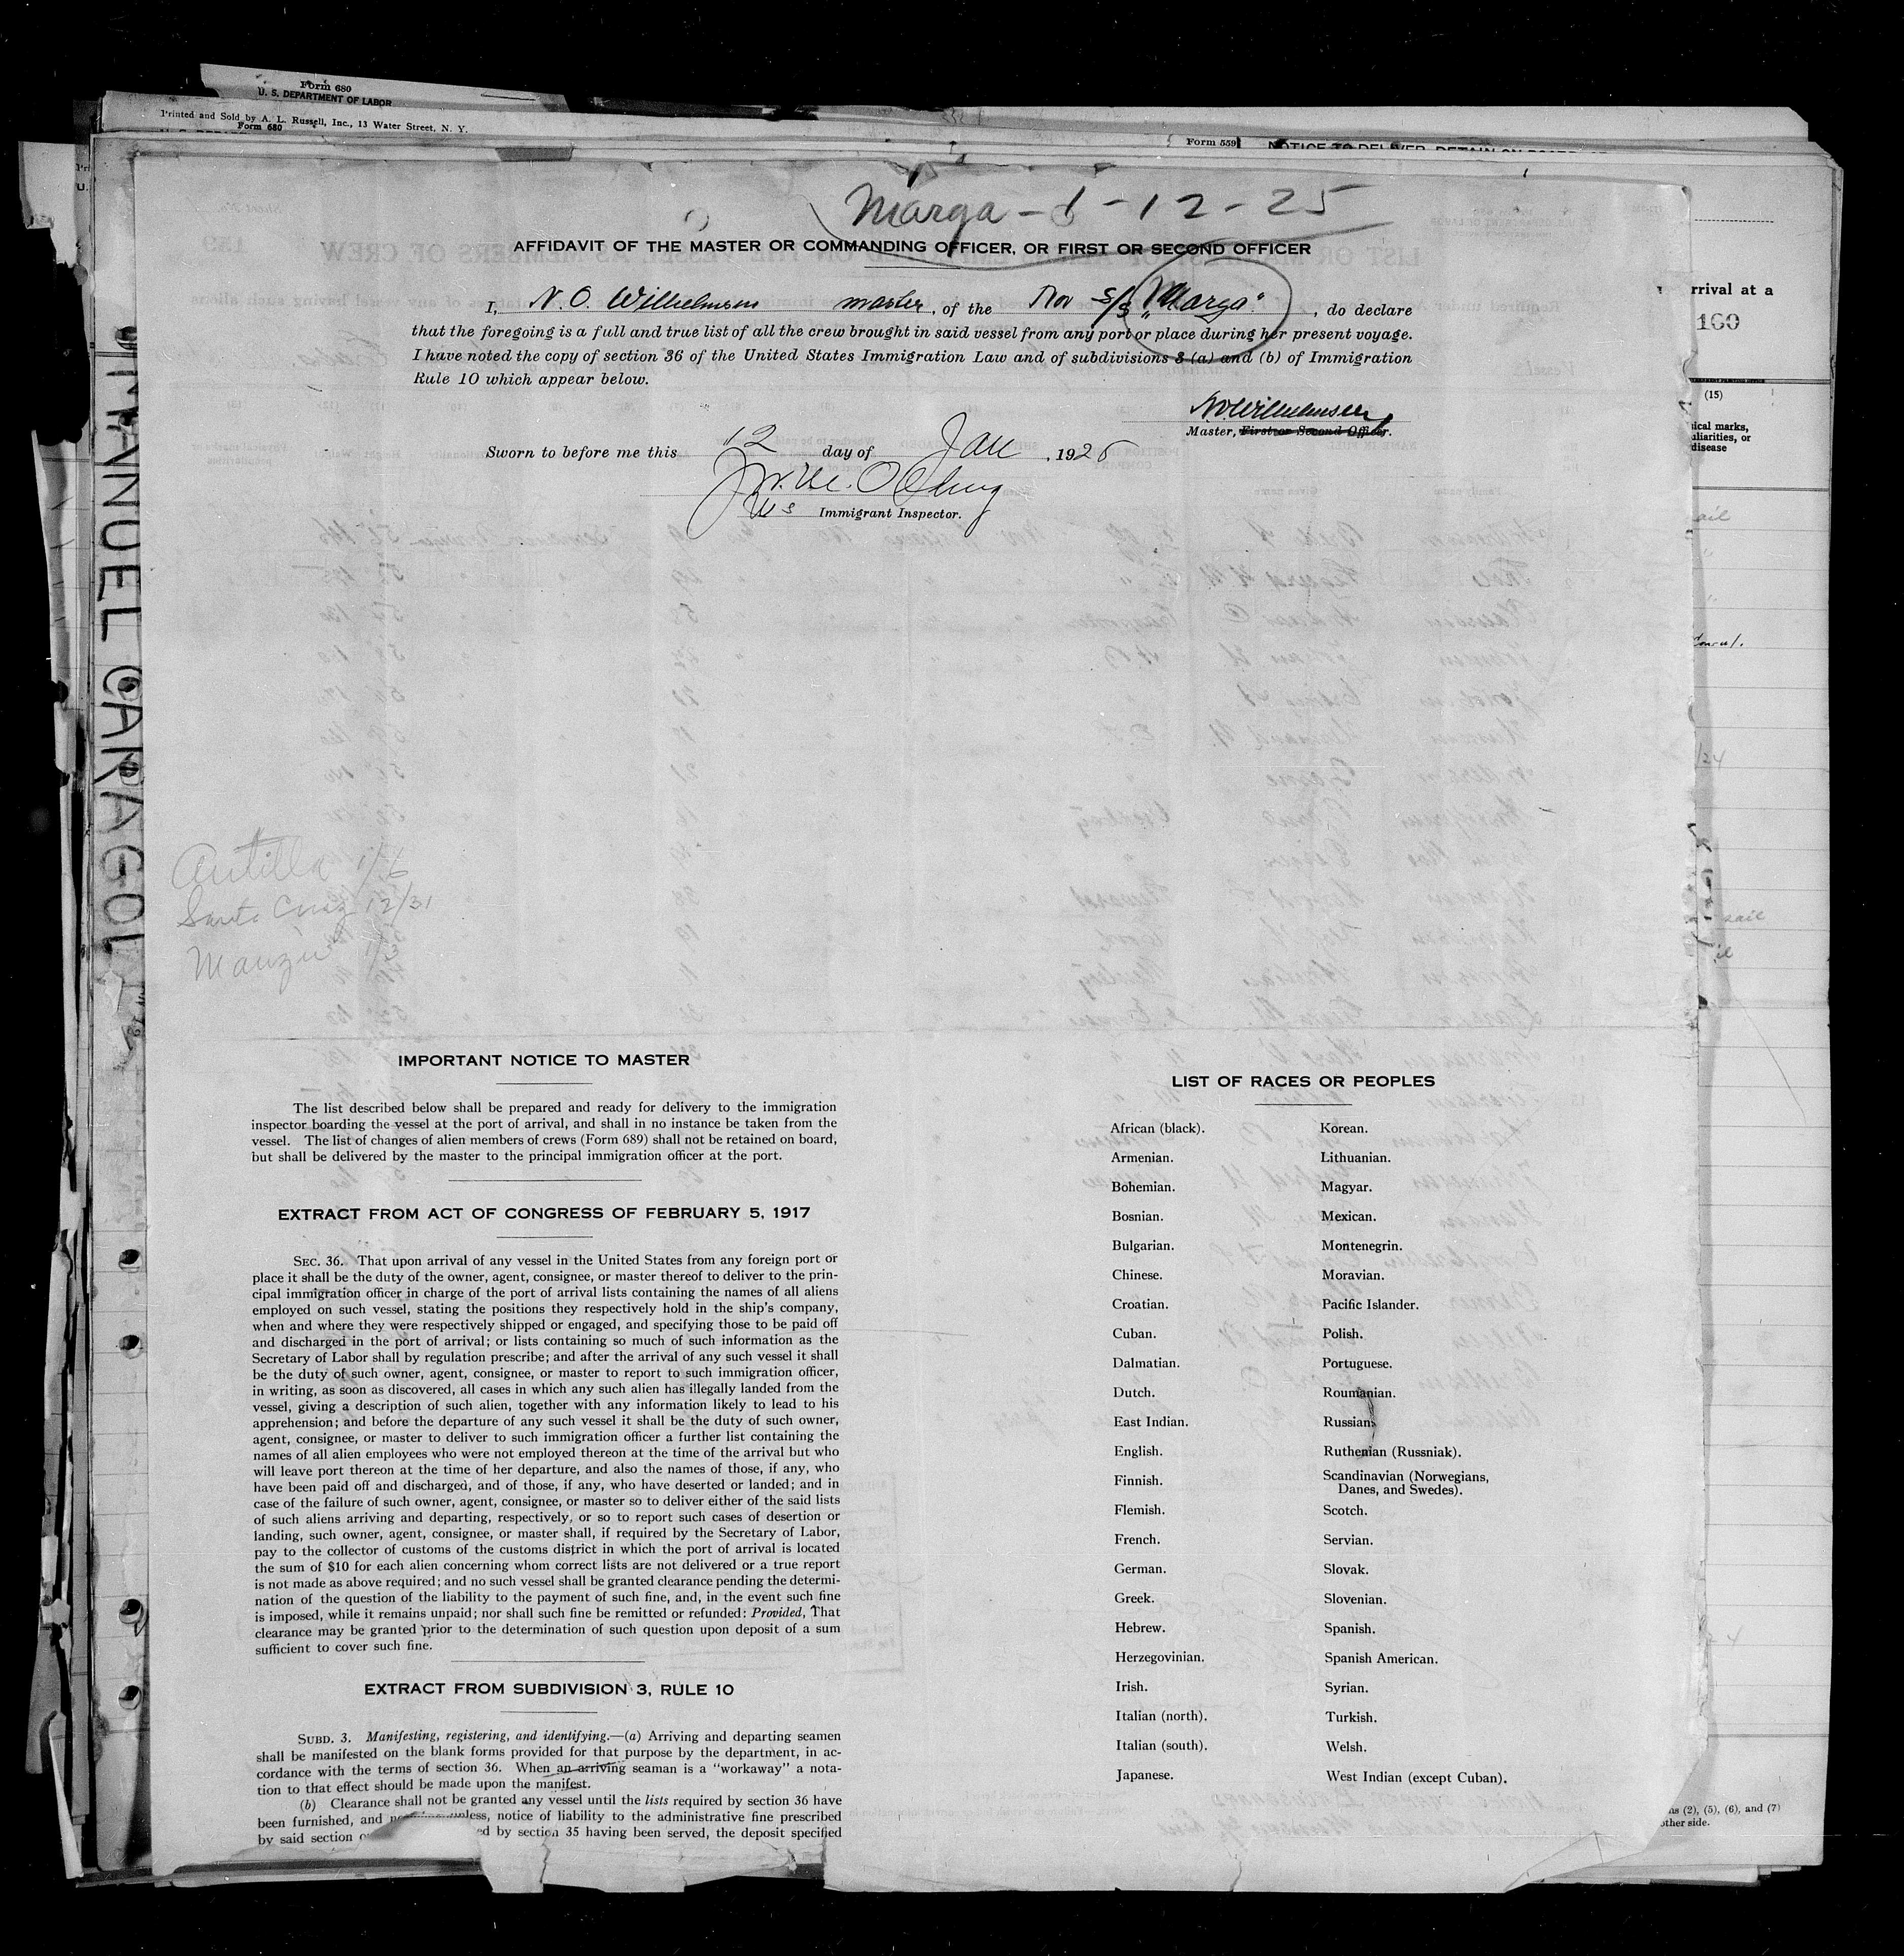 Form 680
U. S. DEPARTMENT OF LABOR
Printed and Sold by A. L. Russell, Inc., 13 Water Street, N. Y.
Form 680
Form 559
NOTICE TO DELIVER, DETAIN ON BOARD,
Marga - 1 - 12 - 25
AFFIDAVIT OF THE MASTER OR COMMANDING OFFICER, OR FIRST OR SECOND OFFICER
I, N. O. Wilhelmsen master, of the Nor S/S "Marga", do declare
that the foregoing is a full and true list of all the crew brought in said vessel from any port or place during her present voyage.
I have noted the copy of section 36 of the United States Immigration Law and of subdivisions 3 (a) and (b) of Immigration
Rule 10 which appear below.
N. O. Wilhelmsen
Master, First or Second Officer.
Sworn to before me this 12 day of Jan, 1925
Immigrant Inspector.
rrival at a
160
(15)
ical marks,
uliarities, or
disease
MANUEL CARAGOL
Antilla 1/6
Santa Cruz 12/31
IMPORTANT NOTICE TO MASTER
The list described below shall be prepared and ready for delivery to the immigration
inspector boarding the vessel at the port of arrival, and shall in no instance be taken from the
vessel. The list of changes of alien members of crews (Form 689) shall not be retained on board,
but shall be delivered by the master to the principal immigration officer at the port.
EXTRACT FROM ACT OF CONGRESS OF FEBRUARY 5, 1917
SEC. 36. That upon arrival of any vessel in the United States from any foreign port or
place it shall be the duty of the owner, agent, consignee, or master thereof to deliver to the prin-
cipal immigration officer in charge of the port of arrival lists containing the names of all aliens
employed on such vessel, stating the positions they respectively hold in the ship's company,
when and where they were respectively shipped or engaged, and specifying those to be paid off
and discharged in the port of arrival; or lists containing so much of such information as the
Secretary of Labor shall by regulation prescribe; and after the arrival of any such vessel it shall
be the duty of such owner, agent, consignee, or master to report to such immigration officer,
in writing, as soon as discovered, all cases in which any such alien has illegally landed from the
vessel, giving a description of such alien, together with any information likely to lead to his
apprehension; and before the departure of any such vessel it shall be the duty of such owner,
agent, consignee, or master to deliver to such immigration officer a further list containing the
names of all alien employees who were not employed thereon at the time of the arrival but who
will leave port thereon at the time of her departure, and also the names of those, if any, who
have been paid off and discharged, and of those, if any, who have deserted or landed; and in
case of the failure of such owner, agent, consignee, or master so to deliver either of the said lists
of such aliens arriving and departing, respectively, or so to report such cases of desertion or
landing, such owner, agent, consignee, or master shall, if required by the Secretary of Labor,
pay to the collector of customs of the customs district in which the port of arrival is located
the sum of $10 for each alien concerning whom correct lists are not delivered or a true report
is not made as above required; and no such vessel shall be granted clearance pending the determi-
nation of the question of the liability to the payment of such fine, and, in the event such fine
is imposed, while it remains unpaid; nor shall such fine be remitted or refunded: Provided, That
clearance may be granted prior to the determination of such question upon deposit of a sum
sufficient to cover such fine.
EXTRACT FROM SUBDIVISION 3, RULE 10
SUBD. 3. Manifesting, registering, and identifying.—(a) Arriving and departing seamen
shall be manifested on the blank forms provided for that purpose by the department, in ac-
cordance with the terms of section 36. When an arriving seaman is a "workaway" a nota-
tion to that effect should be made upon the manifest.
(b) Clearance shall not be granted any vessel until the lists required by section 36 have
been furnished, and unless, notice of liability to the administrative fine prescribed
by said section ed by section 35 having been served, the deposit specified
LIST OF RACES OR PEOPLES
African (black). Korean.
Armenian. Lithuanian.
Bohemian. Magyar.
Bosnian. Mexican.
Bulgarian. Montenegrin.
Chinese. Moravian.
Croatian. Pacific Islander.
Cuban. Polish.
Dalmatian. Portuguese.
Dutch. Roumanian.
East Indian. Russian.
English. Ruthenian (Russniak).
Finnish. Scandinavian (Norwegians,
Danes, and Swedes).
Flemish. Scotch.
French. Servian.
German. Slovak.
Greek. Slovenian.
Hebrew. Spanish.
Herzegovinian. Spanish American.
Irish. Syrian.
Italian (north). Turkish.
Italian (south). Welsh.
Japanese. West Indian (except Cuban).
ns (2), (5), (6), and (7)
other side.